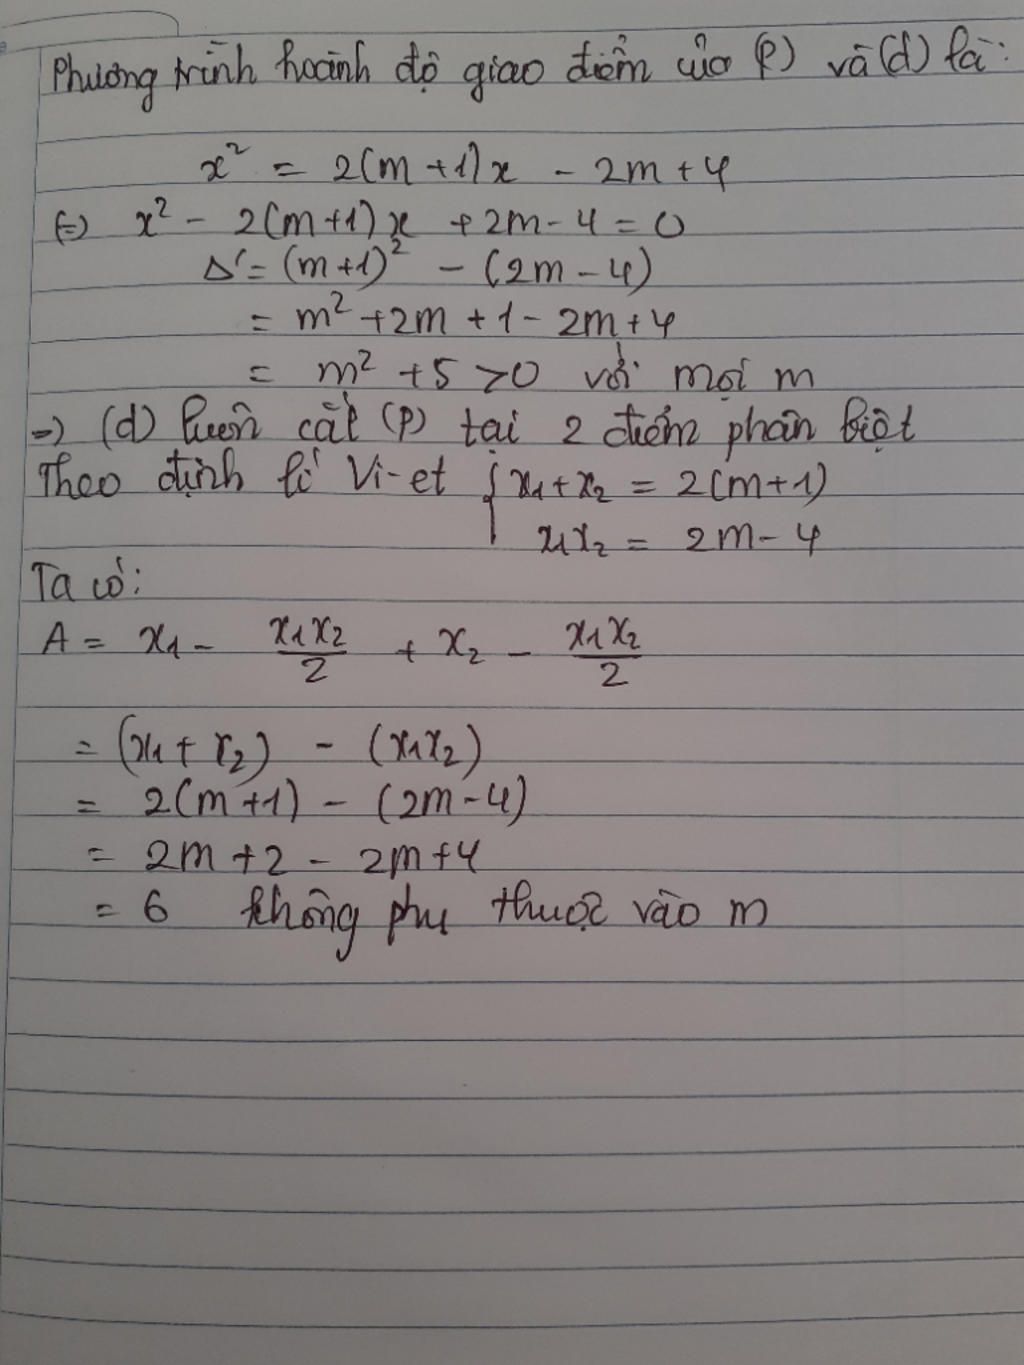 Phương trình hoành độ giao điểm của (P) và (d) là:
x² = 2(m+1)x - 2m+4
(=) x² - 2(m+1)x + 2m-4 = 0
Δ' = (m+1)² - (2m-4)
= m² + 2m + 1 - 2m + 4
= m² + 5 > 0 với mọi m
=> (d) luôn cắt (P) tại 2 điểm phân biệt
Theo định lí Vi-et { x₁+x₂ = 2(m+1)
x₁x₂ = 2m-4
Ta có:
A = x₁ - x₁x₂/2 + x₂ - x₁x₂/2
= (x₁+x₂) - (x₁x₂)
= 2(m+1) - (2m-4)
= 2m+2 - 2m+4
= 6 không phụ thuộc vào m